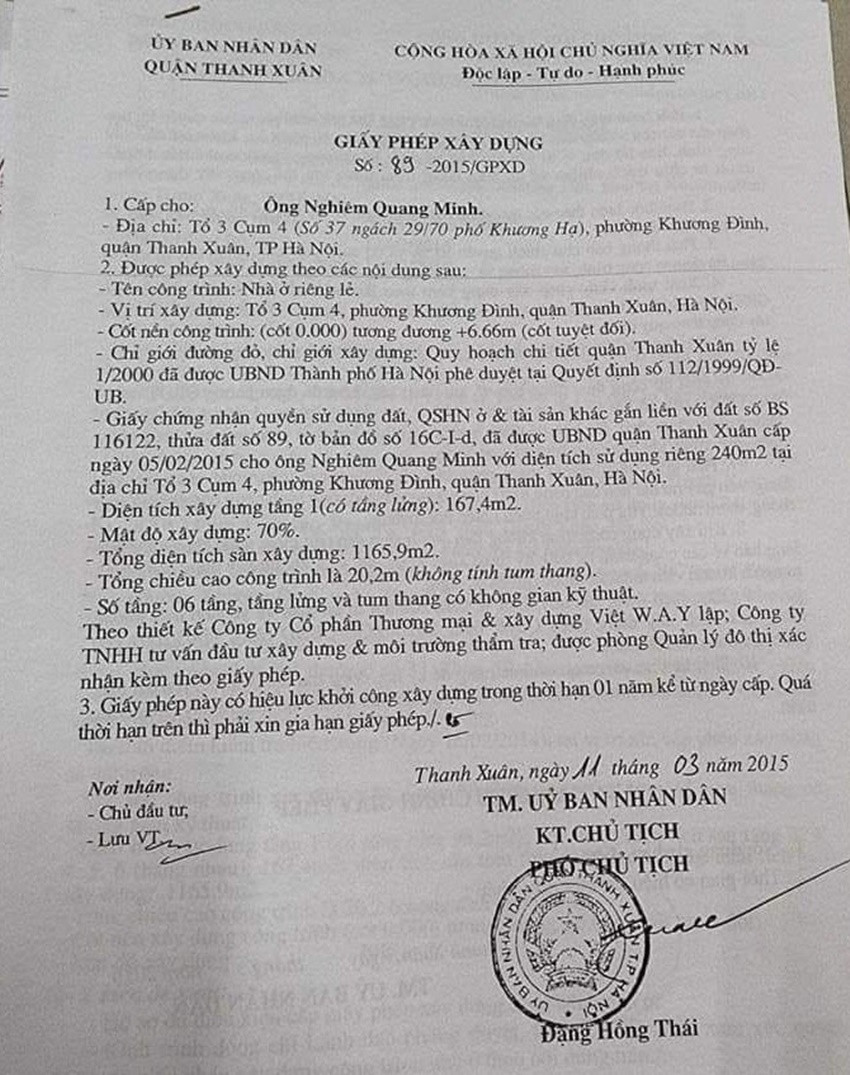 ỦY BAN NHÂN DÂN
QUẬN THANH XUÂN
CỘNG HÒA XÃ HỘI CHỦ NGHĨA VIỆT NAM
Độc lập - Tự do - Hạnh phúc
GIẤY PHÉP XÂY DỰNG
Số : 89 -2015/GPXD
1. Cấp cho: Ông Nghiêm Quang Minh.
- Địa chỉ: Tổ 3 Cụm 4 (Số 37 ngách 29/70 phố Khương Hạ), phường Khương Đình,
quận Thanh Xuân, TP Hà Nội.
2. Được phép xây dựng theo các nội dung sau:
- Tên công trình: Nhà ở riêng lẻ.
- Vị trí xây dựng: Tổ 3 Cụm 4, phường Khương Đình, quận Thanh Xuân, Hà Nội.
- Cốt nền công trình: (cốt 0.000) tương đương +6.66m (cốt tuyệt đối).
- Chỉ giới đường đỏ, chỉ giới xây dựng: Quy hoạch chi tiết quận Thanh Xuân tỷ lệ
1/2000 đã được UBND Thành phố Hà Nội phê duyệt tại Quyết định số 112/1999/QĐ-
UB.
- Giấy chứng nhận quyền sử dụng đất, QSHN ở & tài sản khác gắn liền với đất số BS
116122, thửa đất số 89, tờ bản đồ số 16C-I-d, đã được UBND quận Thanh Xuân cấp
ngày 05/02/2015 cho ông Nghiêm Quang Minh với diện tích sử dụng riêng 240m2 tại
địa chỉ Tổ 3 Cụm 4, phường Khương Đình, quận Thanh Xuân, Hà Nội.
- Diện tích xây dựng tầng 1(có tầng lửng): 167,4m2.
- Mật độ xây dựng: 70%.
- Tổng diện tích sàn xây dựng: 1165,9m2.
- Tổng chiều cao công trình là 20,2m (không tính tum thang).
- Số tầng: 06 tầng, tầng lửng và tum thang có không gian kỹ thuật.
Theo thiết kế Công ty Cổ phần Thương mại & xây dựng Việt W.A.Y lập; Công ty
TNHH tư vấn đầu tư xây dựng & môi trường thẩm tra; được phòng Quản lý đô thị xác
nhận kèm theo giấy phép.
3. Giấy phép này có hiệu lực khởi công xây dựng trong thời hạn 01 năm kể từ ngày cấp. Quá
thời hạn trên thì phải xin gia hạn giấy phép./.
Thanh Xuân, ngày 11 tháng 03 năm 2015
TM. UỶ BAN NHÂN DÂN
KT.CHỦ TỊCH
PHÓ CHỦ TỊCH
Nơi nhận:
- Chủ đầu tư;
- Lưu VT
ỦY BAN NHÂN DÂN QUẬN THANH XUÂN T.P HÀ NỘI
Đặng Hồng Thái